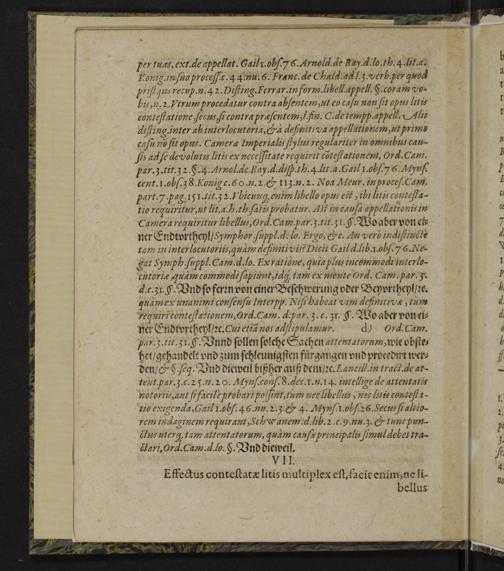 per tuas, ext. de appellat. Gail 1. obs. 76. Arnold. de Ray. d. lo. th. 4. lit. a.
Konig. in suo process. c. 44. nu. 6. Franc. de Chald. ad l. 3. verb. per quod
prist. jus recup. n. 42. Disting. Ferrar. in form. libell. appell. §. coram vo-
bis, n. 2. Vtrum procedatur contra absentem, ut eo casu non sit opus litis
contestatione, secus, si contra præsentem, l. fin. C. de temp. appell. Alii
disting. inter ab interlocutoria, & à definitiva appellationem, ut primo
casu nõ sit opus. Camera Imperialis stylus regulariter in omnibus cau-
sis ad se devolutis litis ex necessitate requirit cõtestationem, Ord. Cam.
par. 3. tit. 32. §. 4. Arnol. de Ray. d. disp. th. 4. lit. a. Gail 1. obs. 76. Myns.
cent. 1. obs. 38. Konig c. 60. n. 2. & 113. n. 2. Noa Meur. in proces. Cam.
part. 7. pag. 151. tit. 32. Vbicunq; enim libello opus est, ibi litis contesta-
tio requiritur, ut lit. a. h. th. satis probatur. Ast in causa appellationis in
Camera requiritur libellus, Ord. Cam. par. 3. tit. 31. §. Wo aber von ei-
ner Endtvrtheyl/ Symphor. suppl. d. lo. Ergo, &c. An verò indistinctè
tam in interlocutoriis, quàm definitivis? Dicit Gail d. lib. 1. obs. 76. Ne-
gat Symph. suppl. Cam. d. lo. Ex ratione, quia plus incommodi interlo-
cutoriæ quàm commodi sapiunt, idq; tam ex mente Ord. Cam. par. 3.
d. c. 31. §. Vnd so fern von einer Beschwerung oder Beyvrtheyl/ ꝛc.
quàm ex unanimi consensu Interpp. Nisi habeat vim definitivæ, tum
requiri contestationem, Ord. Cam. d. par. 3. c. 31. §. Wo aber von ei-
ner Endvrtheyl/ ꝛc. Cui etiã nos adstipulamur. d) Ord. Cam.
par. 3. tit. 31. §. Vnnd sollen solche Sachen attentatorum, wie obste-
het/ gehandelt vnd zum schleunigsten fürgangen vnd procedirt wer-
den/ & §. seq. Vnd dieweil bißher auß dem/ ꝛc. Lancill. in tract. de at-
tent. par. 3. c. 25. n. 20. Myns. cons. 8. dec. 1. n. 14. intellige de attentatis
notoriis, aut si facilè probari possint, tum nec libelleis, nec litis contesta-
tio exigenda, Gail 1. obs. 46. nu. 2. 3. & 4. Myns. 1. obs. 26. Secus si altio-
rem indaginem requirant, Schwanem. d. lib. 2. c. 9. nu. 3. & tunc pun-
ctus uterq; tam attentatorum, quàm causæ principalis simul debet tra-
ctari, Ord. Cam. d. lo. §. Vnd dieweil.
VII.
Effectus contestatæ litis multiplex est, facit enim, ne li-
bellus